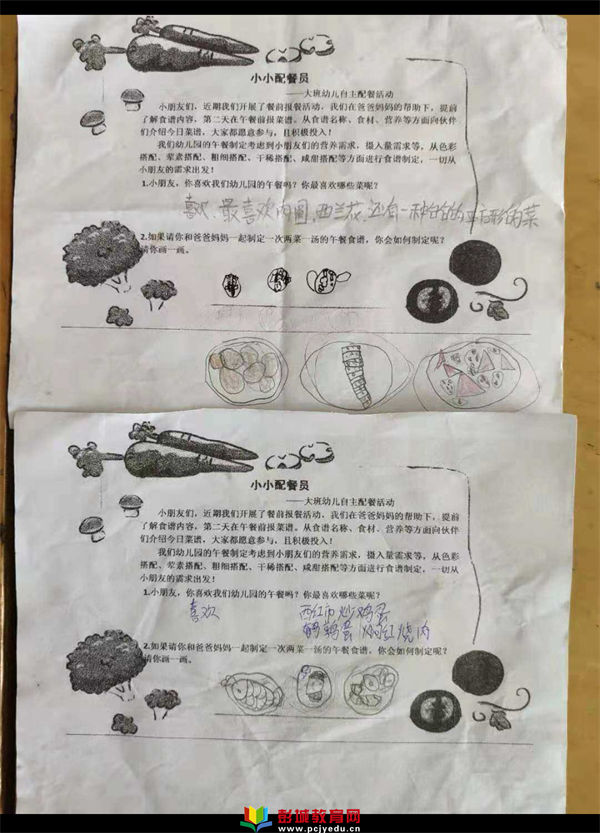 小小配餐员
——大班幼儿自主配餐活动
小朋友们，近期我们开展了餐前报餐活动，我们在爸爸妈妈的帮助下，提前
了解食谱内容，第二天在午餐前报菜谱。从食谱名称、食材、营养等方面向伙伴
们介绍今日菜谱，大家都愿意参与，且积极投入！
我们幼儿园的午餐制定考虑到小朋友们的营养需求，摄入量需求等，从色彩
搭配、荤素搭配、粗细搭配、干稀搭配、咸甜搭配等方面进行食谱制定，一切从
小朋友的需求出发！
1.小朋友，你喜欢我们幼儿园的午餐吗？你最喜欢哪些菜呢？
喜欢、最喜欢肉圆，西兰花，还有一种白白的正方形的菜
2.如果请你和爸爸妈妈一起制定一次两菜一汤的午餐食谱，你会如何制定呢？
请你画一画。
小小配餐员
——大班幼儿自主配餐活动
小朋友们，近期我们开展了餐前报餐活动，我们在爸爸妈妈的帮助下，提前
了解食谱内容，第二天在午餐前报菜谱。从食谱名称、食材、营养等方面向伙伴
们介绍今日菜谱，大家都愿意参与，且积极投入！
我们幼儿园的午餐制定考虑到小朋友们的营养需求，摄入量需求等，从色彩
搭配、荤素搭配、粗细搭配、干稀搭配、咸甜搭配等方面进行食谱制定，一切从
小朋友的需求出发！
1.小朋友，你喜欢我们幼儿园的午餐吗？你最喜欢哪些菜呢？
喜欢 西红巾炒鸡蛋
鹌鹑蛋 红烧肉
2.如果请你和爸爸妈妈一起制定一次两菜一汤的午餐食谱，你会如何制定呢？
请你画一画。
彭城教育网
www.pcjyedu.cn